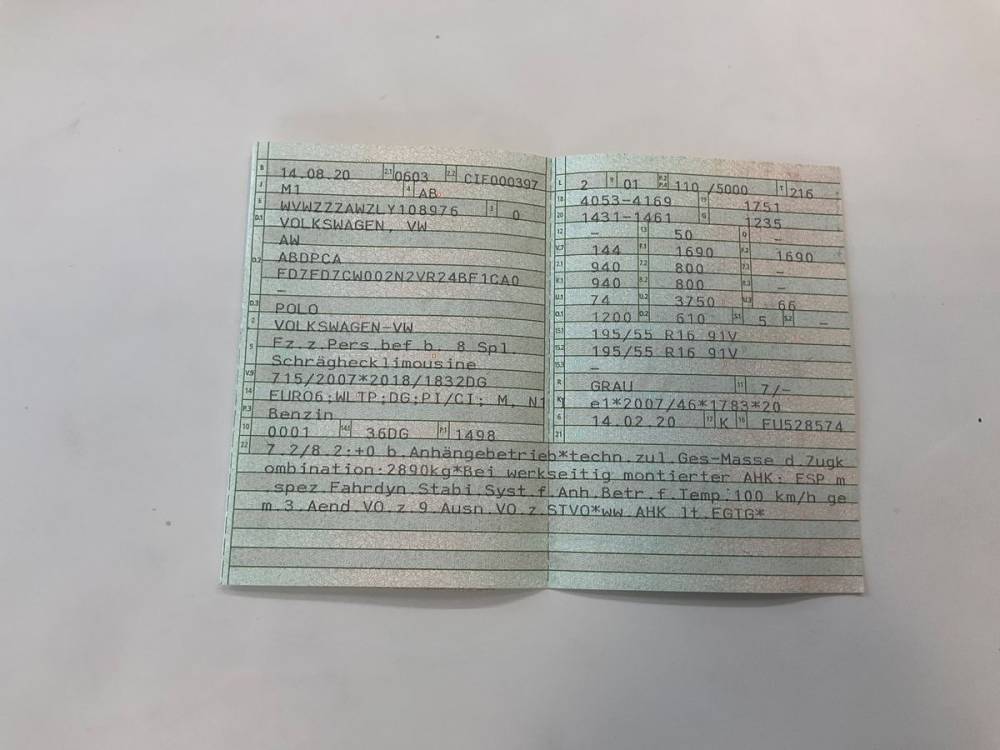 B 14.08.20 2.1 0603 2.2 CIE000397
J M1 4 AB
E WVWZZZAWZLY108976 3 0
D.1 VOLKSWAGEN, VW
AW
D.2 ABDPCA
FD7FD7CW002N2VR24BF1CA0
–
D.3 POLO
2 VOLKSWAGEN-VW
5 Fz.z.Pers.bef.b. 8 Spl.
Schräghecklimousine
V.9 715/2007*2018/1832DG
14 EURO6;WLTP;DG;PI/CI; M, N1
P.3 Benzin
10 0001 14.1 36DG P.1 1498
L 2 9 01 P.2 P.4 110 /5000 T 216
18 4053-4169 19 1751
20 1431-1461 G 1235
12 – 13 50 Q –
V.7 144 F.1 1690 F.2 1690
7.1 940 7.2 800 7.3 –
8.1 940 8.2 800 8.3 –
U.1 74 U.2 3750 U.3 66
O.1 1200 O.2 610 S.1 5 S.2 –
15.1 195/55 R16 91V
15.2 195/55 R16 91V
15.3 –
R GRAU 11 7/–
K e1*2007/46*1783*20
6 14.02.20 17 K 16 FU528574
21
22 7.2/8.2:+0 b.Anhängebetrieb*techn.zul.Ges-Masse d.Zugk
ombination:2890kg*Bei werkseitig montierter AHK: ESP m
.spez.Fahrdyn.Stabi.Syst.f.Anh.Betr.f.Temp:100 km/h ge
m.3.Aend.VO.z.9.Ausn.VO.z.STVO*ww.AHK lt.EGTG*